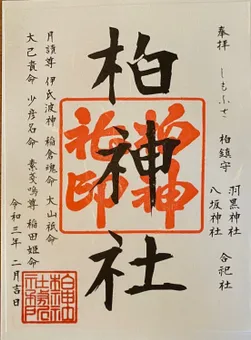 奉拝
しもふさ
柏鎮守
羽黒神社
八坂神社
合祀社
柏神社
柏神
社印
月讀尊 伊氐波神 稲倉魂命 大山祇命
大己貴命 少彦名命 素戔嗚尊 稲田姫命
令和三年二月吉日